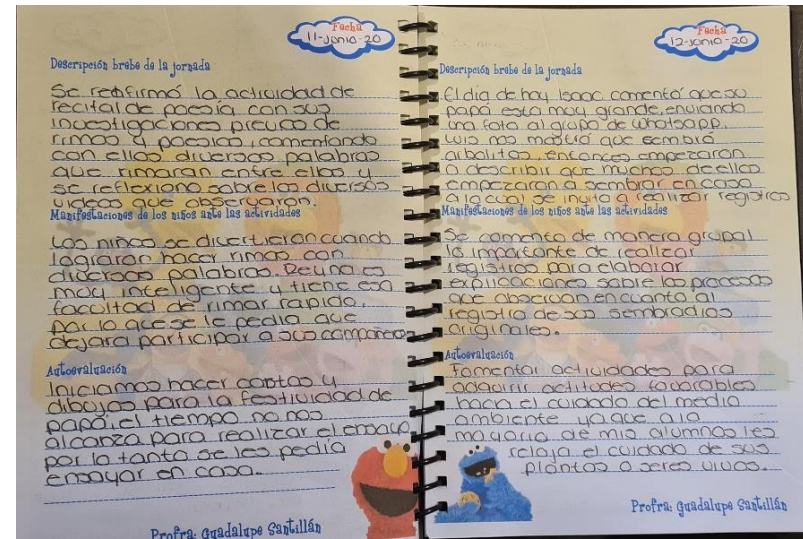 Fecha
11-Junio-20
Descripción brebe de la jornada
Se reafirmó la actividad de
recital de poesía con sus
investigaciones previas de
rimas y poesías, comentando
con ellos diversas palabras
que rimaran entre ellas y
se reflexiono sobre los diversos
videos que observaron.
Manifestaciones de los niños ante las actividades
Los niños se divertieron cuando
lograron hacer rimas con
diversas palabras Reyna es
muy inteligente y tiene esa
facultad de rimar rapido,
por lo que se le pedia que
dejara participar a sus compañeros
Autoevaluación
Iniciamos hacer cartas y
dibujos para la festividad de
papá, el tiempo no nos
alcanza para realizar el ensayo
por lo tanto se les pedia
ensayar en casa.
Profra: Guadalupe Santillán
Fecha
12-Junio-20
Descripción brebe de la jornada
El día de hoy Isaac comentó que su
papá esta muy grande, enviando
una foto al grupo de Whatsapp.
Luis nos mostró que sembró
arbolitos, entonces empezaron
a describir que muchos de ellos
empezaron a sembrar en casa
a lo cual se invito a realizar registros
Manifestaciones de los niños ante las actividades
Se comento de manera grupal
lo importante de realizar
registros para elaborar
explicaciones sobre los procesos
que observan en cuanto al
registro de sus sembradios
originales.
Autoevaluación
Fomentar actividades para
adquirir actitudes favorables
hacia el cuidado del medio
ambiente ya que a la
mayoria de mis alumnos les
relaja el cuidado de sus
plantas o seres vivos.
Profra: Guadalupe Santillán